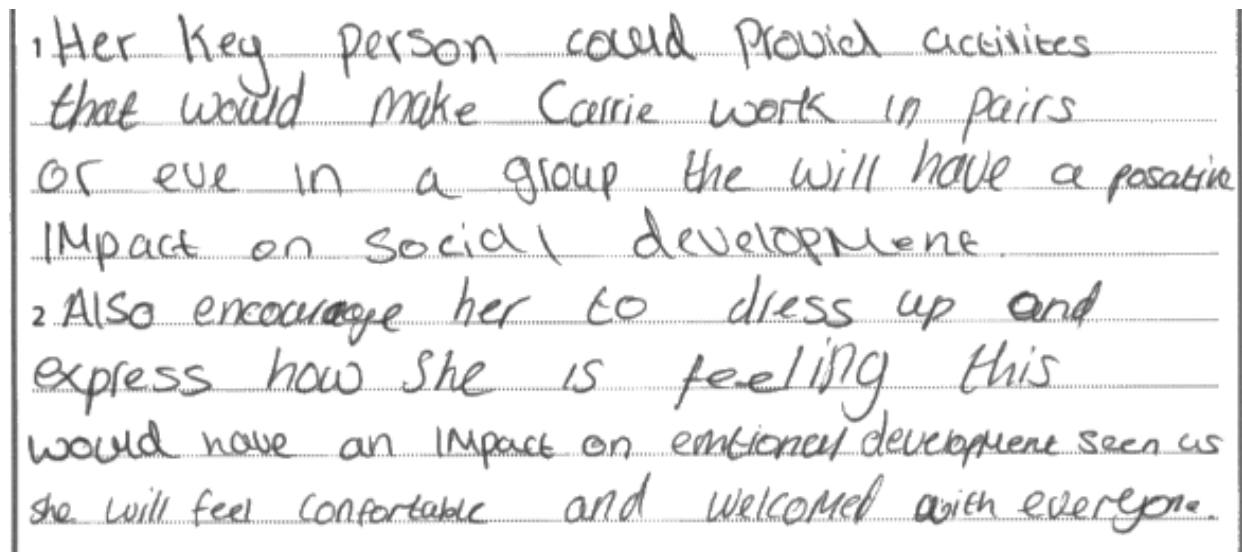 1 Her Key person could Provid activites
that would make Carrie work in pairs
or eve in a group the will have a posative
impact on social development.
2 Also encourage her to dress up and
express how she is feeling this
would have an impact on emtional development seen as
she will feel confortable and welcomed with everyone.